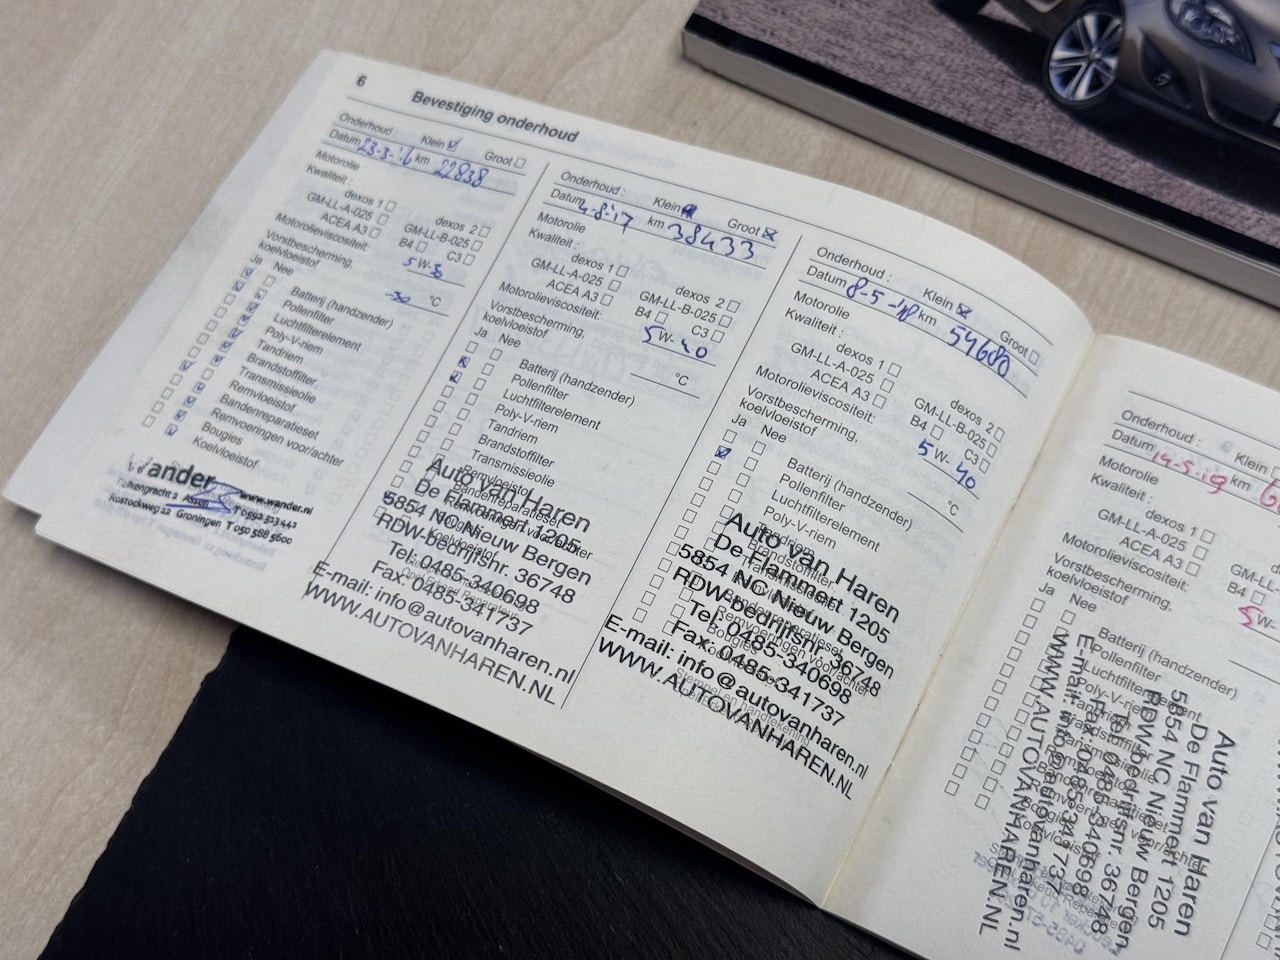 6
Bevestiging onderhoud
Onderhoud : Klein Groot
Datum 23-3-'16 km 22838
Motorolie
Kwaliteit :
dexos 1 dexos 2
GM-LL-A-025 GM-LL-B-025
ACEA A3 B4 C3
Motorolieviscositeit: 5 W- 30
Vorstbescherming,
koelvloeistof -30 °C
Ja Nee
Batterij (handzender)
Pollenfilter
Luchtfilterelement
Poly-V-riem
Tandriem
Brandstoffilter
Transmissieolie
Remvloeistof
Bandenreparatieset
Remvoeringen voor/achter
Bougies
Koelvloeistof
wander
www.wander.nl
Assen T 0592 313442
Groningen T 050 588 5600
Onderhoud : Klein Groot
Datum 4-8-'17 km 38433
Motorolie
Kwaliteit :
dexos 1 dexos 2
GM-LL-A-025 GM-LL-B-025
ACEA A3 B4 C3
Motorolieviscositeit: 5 W- 40
Vorstbescherming,
koelvloeistof °C
Ja Nee
Batterij (handzender)
Pollenfilter
Luchtfilterelement
Poly-V-riem
Tandriem
Brandstoffilter
Transmissieolie
Remvloeistof
Bandenreparatieset
Auto van Haren
De Flammert 1205
5854 NC Nieuw Bergen
RDW-bedrijfsnr. 36748
Tel: 0485-340698
Fax: 0485-341737
E-mail: info@autovanharen.nl
WWW.AUTOVANHAREN.NL
Onderhoud : Klein Groot
Datum 8-5-'18 km 54680
Motorolie
Kwaliteit :
dexos 1 dexos 2
GM-LL-A-025 GM-LL-B-025
ACEA A3 B4 C3
Motorolieviscositeit: 5 W- 40
Vorstbescherming,
koelvloeistof °C
Ja Nee
Batterij (handzender)
Pollenfilter
Luchtfilterelement
Poly-V-riem
Tandriem
Brandstoffilter
Transmissieolie
Bandenreparatieset
Remvoeringen voor/achter
Bougies
Stempel en handtekening
Auto van Haren
De Flammert 1205
5854 NC Nieuw Bergen
RDW-bedrijfsnr. 36748
Tel: 0485-340698
Fax: 0485-341737
E-mail: info@autovanharen.nl
WWW.AUTOVANHAREN.NL
Onderhoud : Klein
Datum 14-5-19 km
Motorolie
Kwaliteit :
dexos 1
GM-LL-A-025
ACEA A3 B4
Motorolieviscositeit: 5 W-
Vorstbescherming,
koelvloeistof
Ja Nee
Batterij (handzender)
Pollenfilter
Luchtfilterelement
Poly-V-riem
Tandriem
Brandstoffilter
Transmissieolie
Remvloeistof
Bandenreparatieset
Remvoeringen voor/achter
Bougies
Koelvloeistof
Auto van Haren
De Flammert 1205
5854 NC Nieuw Bergen
RDW-bedrijfsnr. 36748
Tel: 0485-340698
Fax: 0485-341737
E-mail: info@autovanharen.nl
WWW.AUTOVANHAREN.NL